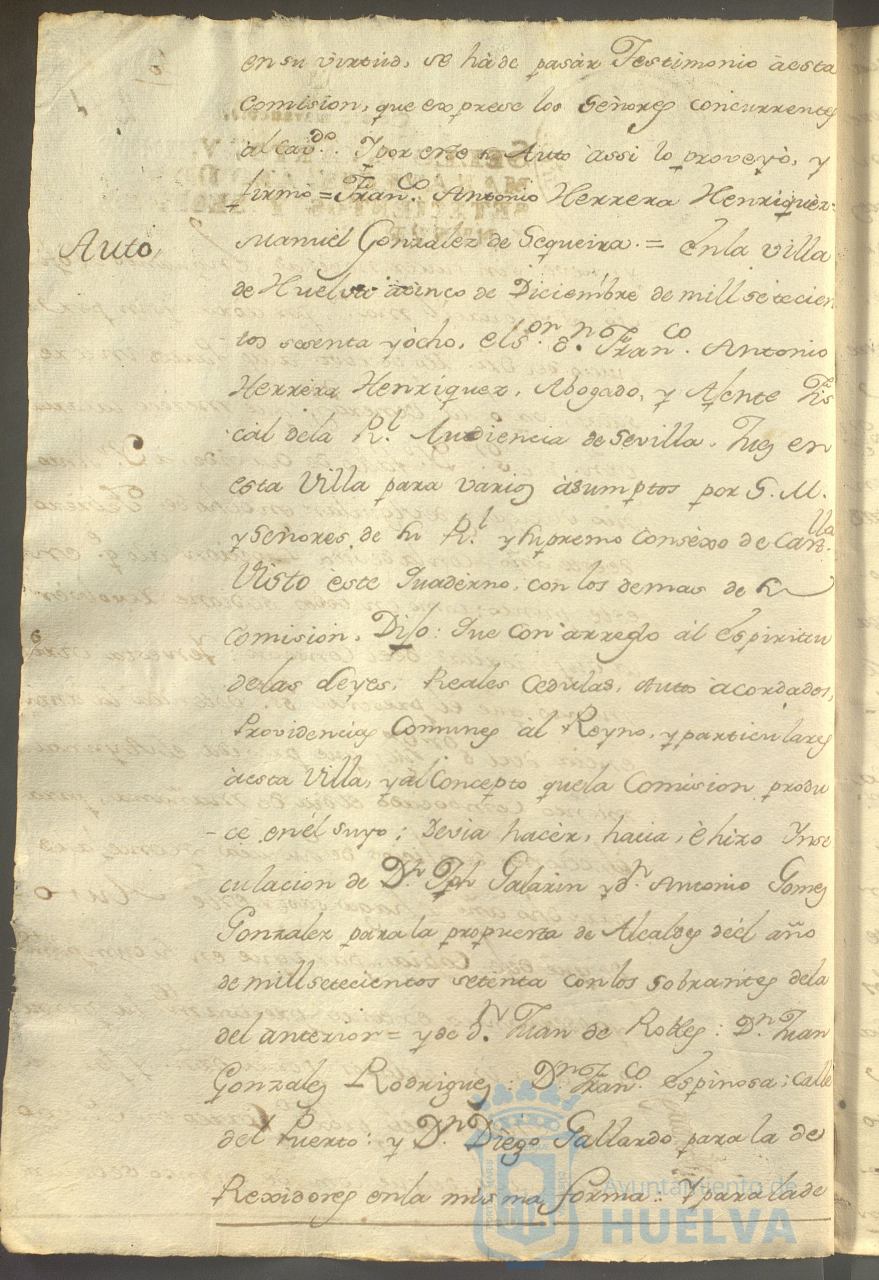 en su virtud, se hà de pasàr Testimonio àesta
Comision, que exprese los Señores concurrentes
al Cavdo. Y por este su Auto àssi lo proveyò, y
firmò = Franco. Antonio Herrera Henriquez:
Auto,
Manuel Gonzalez de Sequeira. = En la Villa
de Huelva à cinco de Diciembre de mill setecien
tos sesenta y òcho, el Sor. Dn. Franco. Antonio
Herrera Henriquez, Abogado, y Ajente Fis
cal dela Rl. Audiencia de Sevilla, Juez en
esta Villa para varios àsumptos por S. M.
y Señores de su Rl. y supremo Consexo de Casta.
Visto este Quaderno, con los demas de su
Comision, Dijo: Que con arreglo àl Espiritu
delas Leyes, Reales Cedulas, Autos àcordados,
Providencias Comunes àl Reyno, y particulares
àesta Villa, y al Concepto que la Comision produ
-ce en èl suyo; Devia hacèr, hacia, è hizo Inse
culacion de Dn. Jph Galarin y dn. Antonio Gomez
Gonzalez para la propuesta de Alcaldes deèl año
de mill setecientos setenta con los sobrantes dela
del anterior = y de dn. Juan de Robles: Dn. Juan
Gonzalez Rodriguez: Dn. Franco. Espinosa; calle
del Puerto: y Dn. Diego Gallardo para la de
Rexidores en la misma forma: Y para la de
Ayuntamiento de
HUELVA